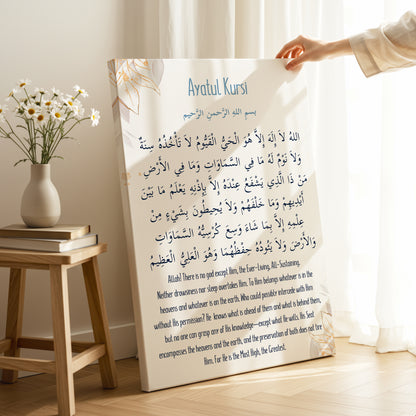 Ayatul Kursi
بِسْمِ اللهِ الرَّحْمٰنِ الرَّحِيْمِ
اللهُ لَا إِلَهَ إِلَّا هُوَ الْحَيُّ الْقَيُّومُ لَا تَأْخُذُهُ سِنَةٌ
وَلَا نَوْمٌ لَهُ مَا فِي السَّمَاوَاتِ وَمَا فِي الْأَرْضِ
مَنْ ذَا الَّذِي يَشْفَعُ عِنْدَهُ إِلَّا بِإِذْنِهِ يَعْلَمُ مَا بَيْنَ
أَيْدِيهِمْ وَمَا خَلْفَهُمْ وَلَا يُحِيطُونَ بِشَيْءٍ مِنْ
عِلْمِهِ إِلَّا بِمَا شَاءَ وَسِعَ كُرْسِيُّهُ السَّمَاوَاتِ
وَالْأَرْضَ وَلَا يَئُودُهُ حِفْظُهُمَا وَهُوَ الْعَلِيُّ الْعَظِيمُ
Allah! There is no god except Him, the Ever-Living, All-Sustaining.
Neither drowsiness nor sleep overtakes Him. To Him belongs whatever is in the
heavens and whatever is on the earth. Who could possibly intercede with Him
without His permission? He knows what is ahead of them and what is behind them,
but no one can grasp any of His knowledge—except what He wills. His Seat
encompasses the heavens and the earth, and the preservation of both does not tire
Him. For He is the Most High, the Greatest.